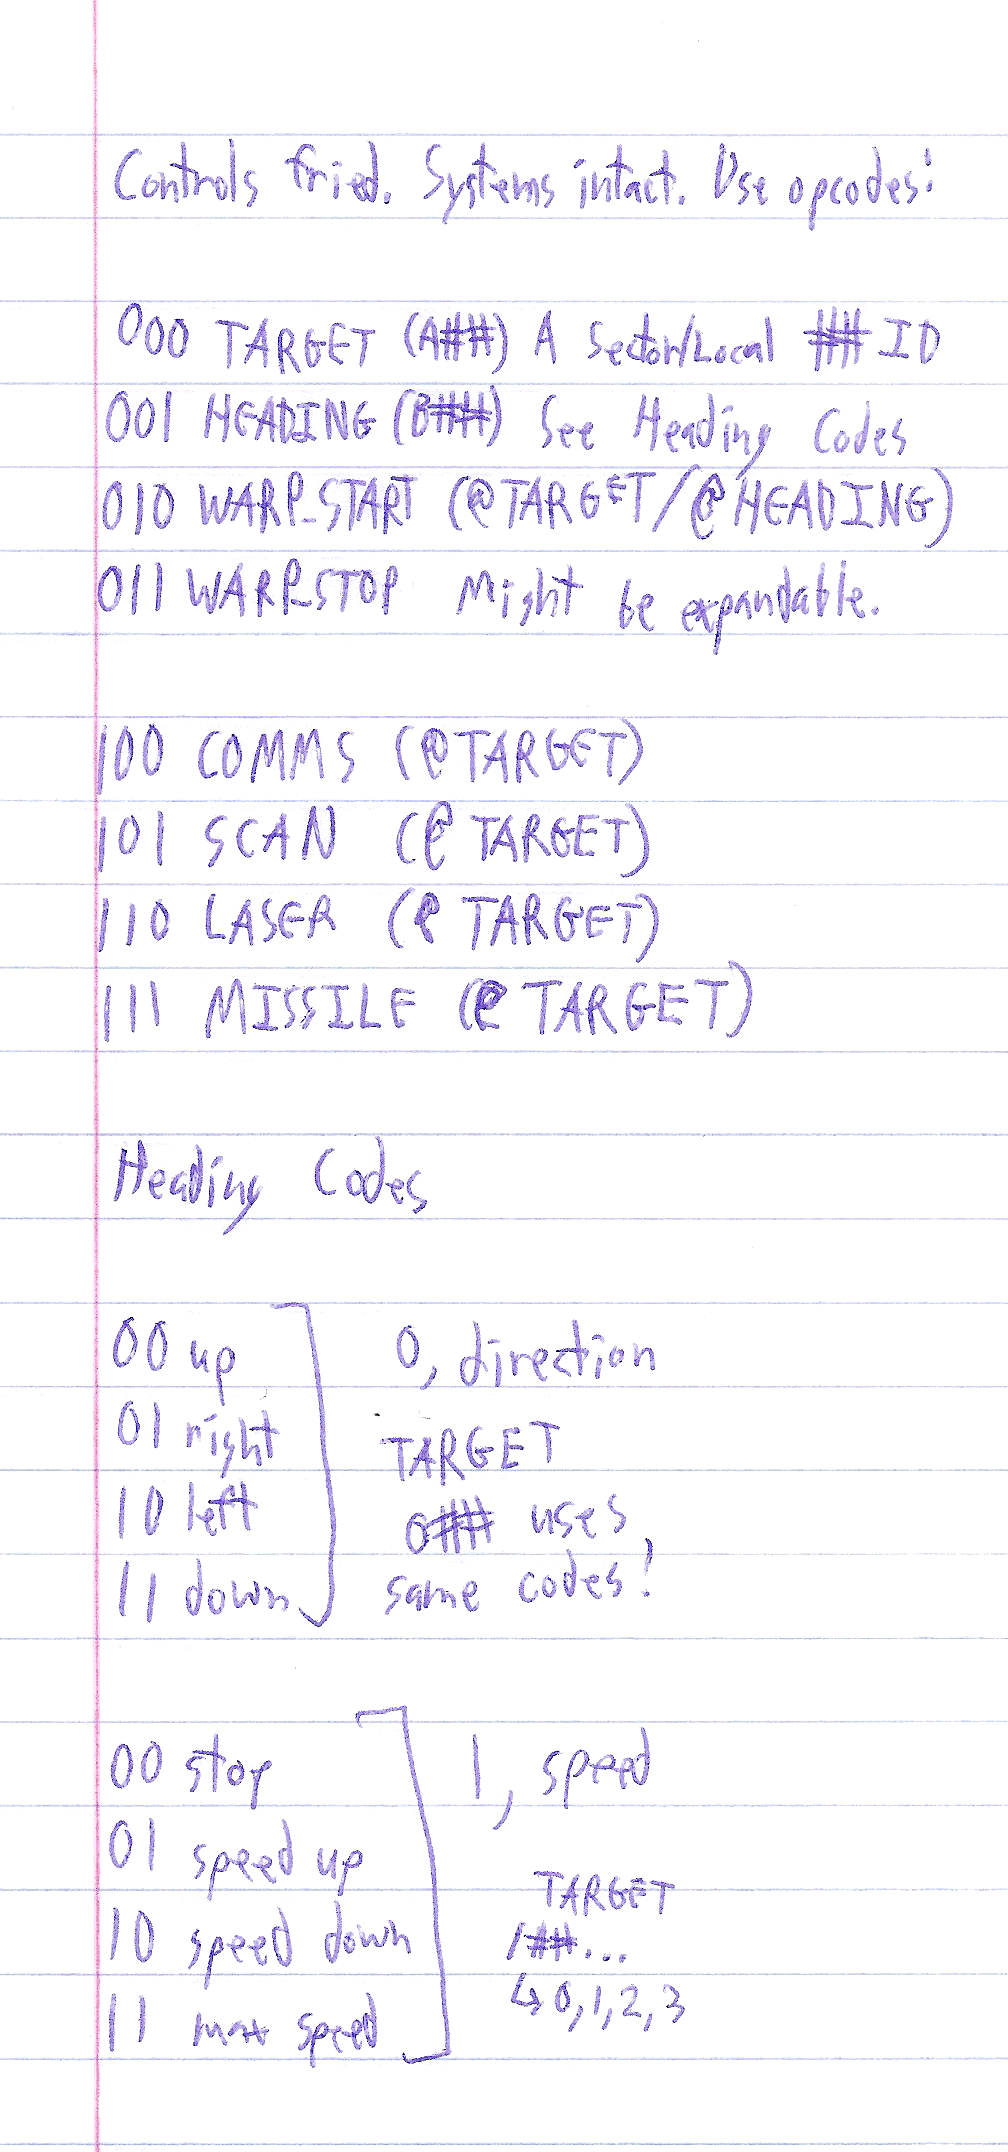 Controls fried. Systems intact. Use opcodes:
000 TARGET (A##) A Sector/Local ## ID
001 HEADING (B##) See Heading Codes
010 WARP_START (@TARGET/@HEADING)
011 WARP_STOP Might be expandable.
100 COMMS (@TARGET)
101 SCAN (@TARGET)
110 LASER (@TARGET)
111 MISSILE (@TARGET)
Heading Codes
00 up
01 right
10 left
11 down
0, direction
TARGET
0## uses
same codes!
00 stop
01 speed up
10 speed down
11 max speed
1, speed
TARGET
1##...
↳ 0, 1, 2, 3